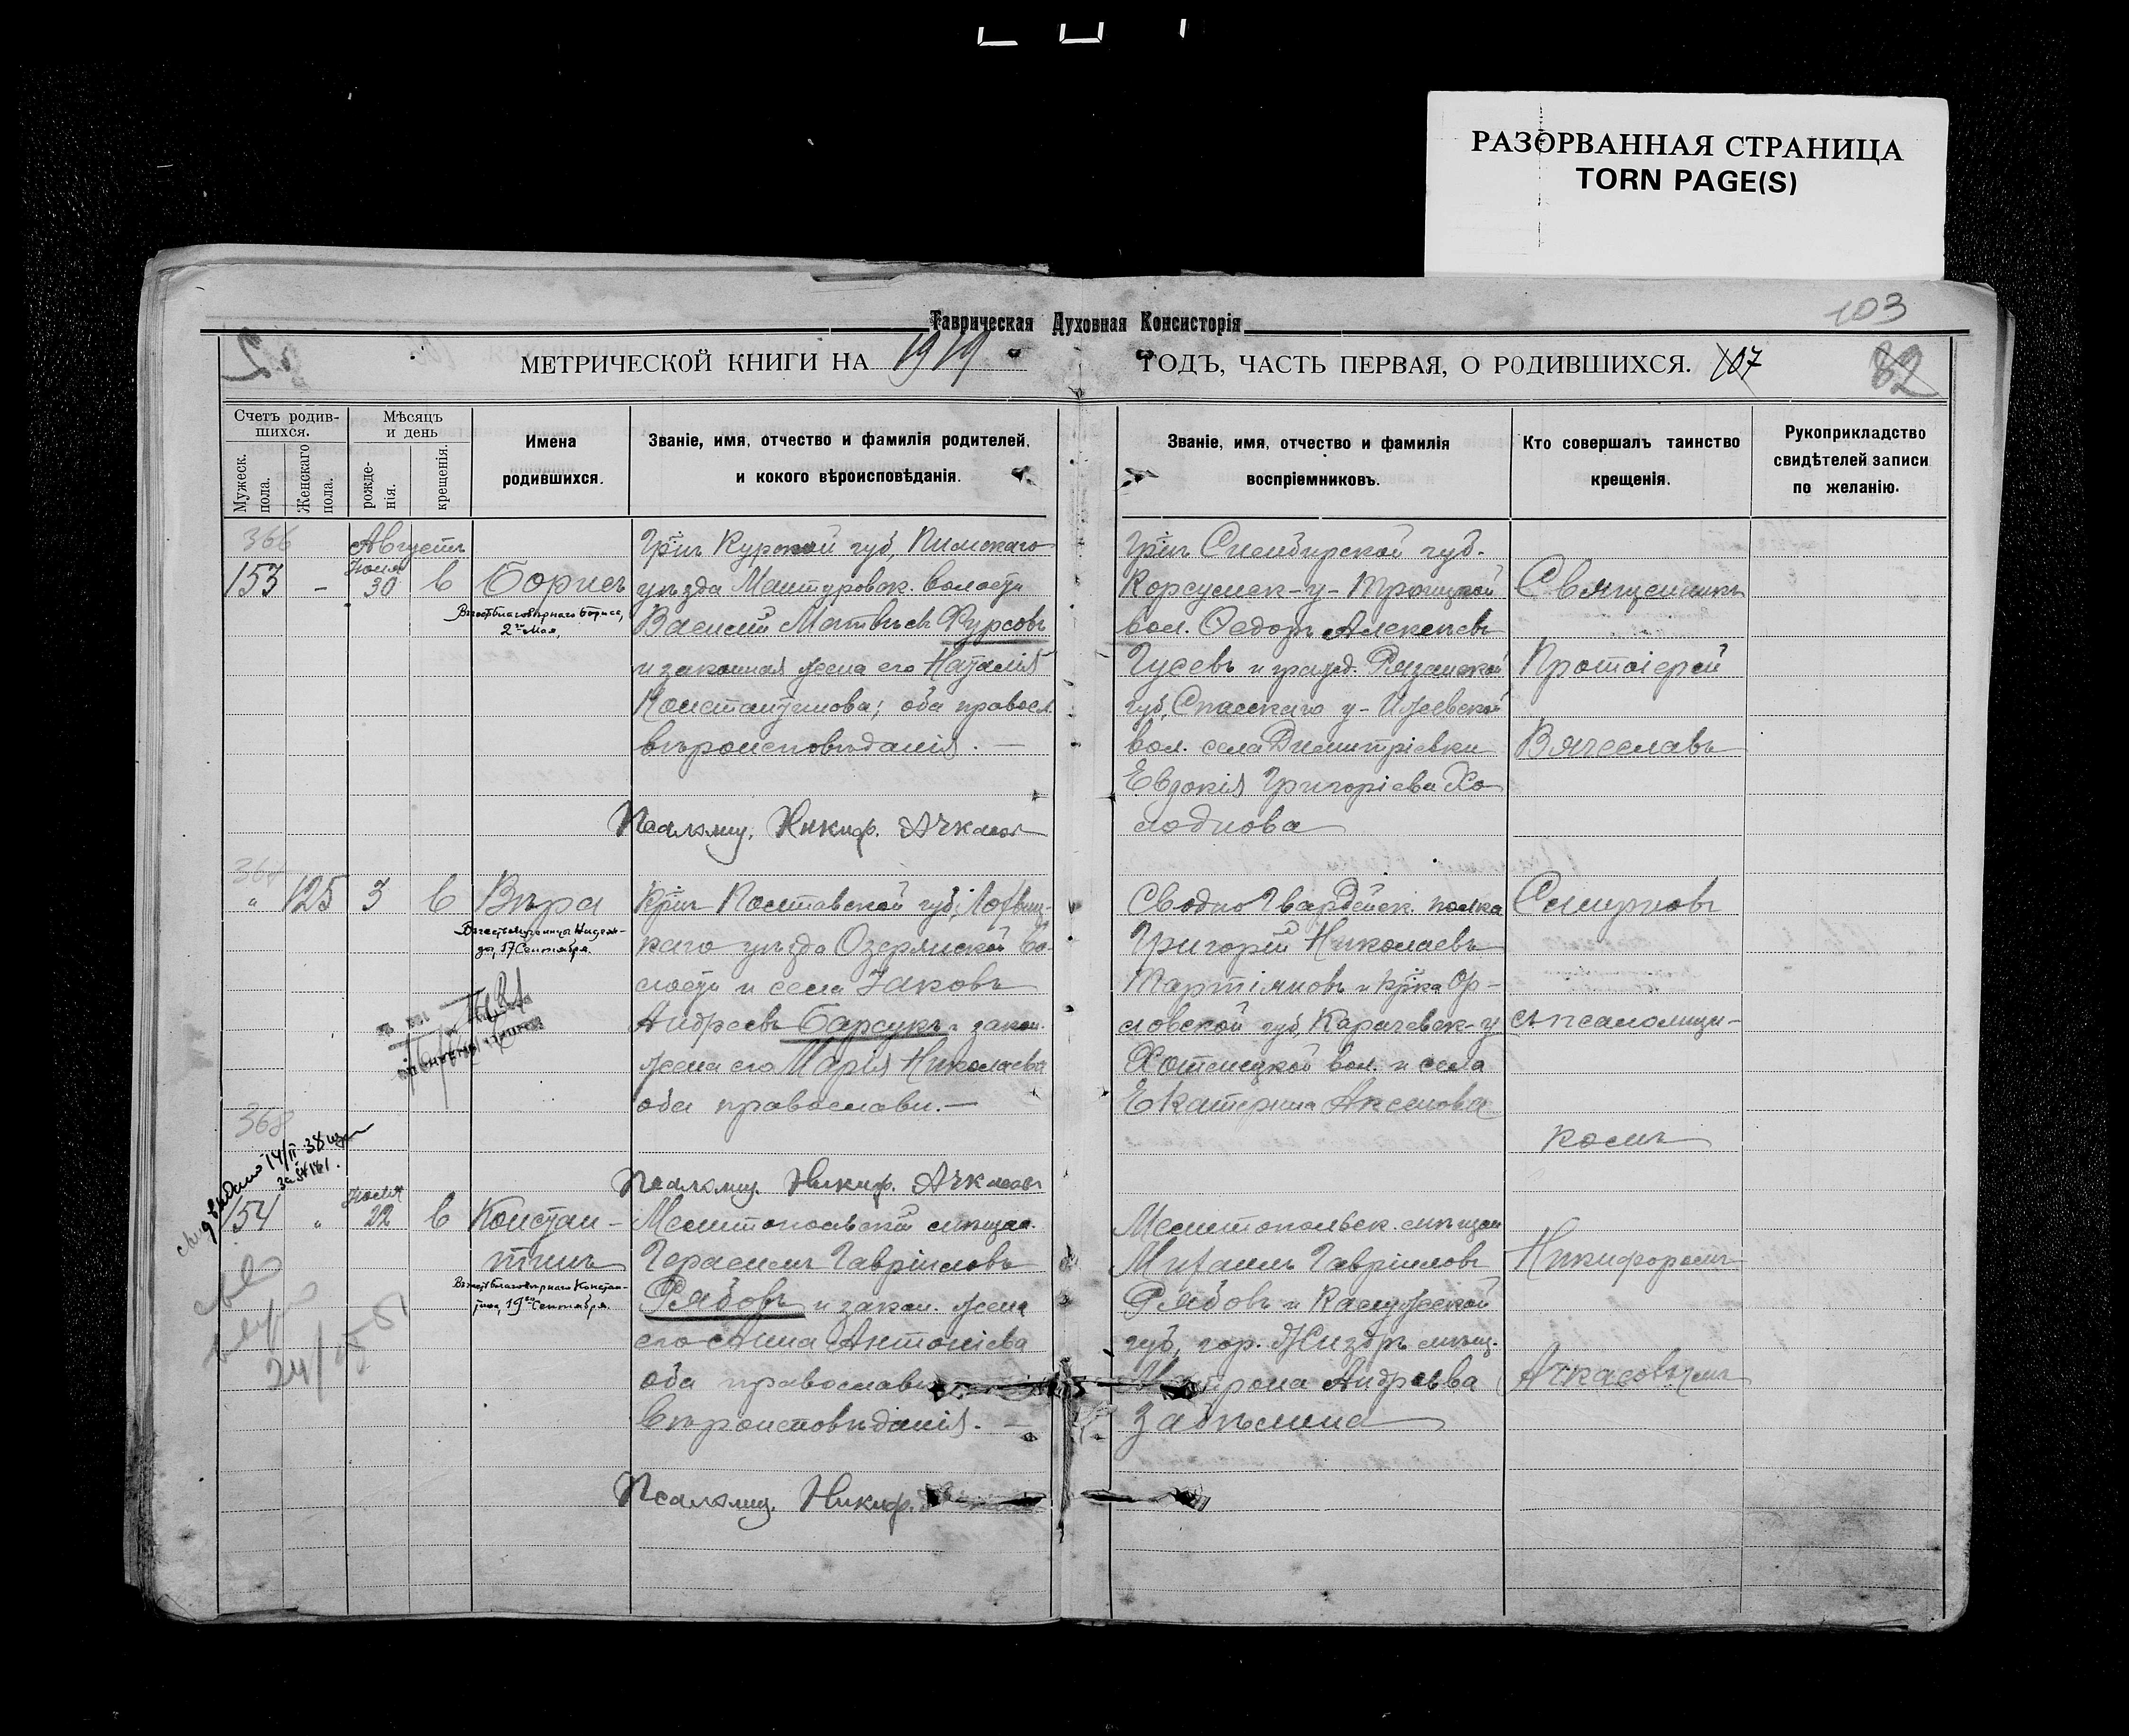 РАЗОРВАННАЯ СТРАНИЦА
TORN PAGE(S)
103
Таврическая Духовная Консисторія
МЕТРИЧЕСКОЙ КНИГИ НА 1919
ГОДЪ, ЧАСТЬ ПЕРВАЯ, О РОДИВШИХСЯ. 107
82
Счетъ родив-
шихся.
Мужеск.
пола.
Женскаго
пола.
Мѣсяцъ
и день
рожде-
нія.
крещенія.
Имена
родившихся.
Званіе, имя, отчество и фамилія родителей,
и кокого вѣроисповѣданія.
Званіе, имя, отчество и фамилія
воспріемниковъ.
Кто совершалъ таинство
крещенія.
Рукоприкладство
свидѣтелей записи
по желанію.
366
Августъ
153 - Іюля 30 6 Борисъ
Въ честь благовѣрнаго Бориса,
2го Мая.
Гр҃нъ Курской губ, Тимскаго
уѣзда Мантуровск. волости
Василій Матвѣевъ Фурсовъ
и законная жена его Наталія
Константинова; оба правосл.
вѣроисповѣданія. —
Псаломщ. Никиф. Ачкасовъ
Гр҃нъ Симбирской губ.
Корсунск-у- Троицкой
вол. Ѳедоръ Алексѣевъ
Гусевъ и гражд. Рязанской
губ, Спасскаго у- Ижевской
вол. села Димитріевки
Евдокія Григоріева Хо
лоднова
Священникъ
Протоіерей
Вячеславъ
" 125 3 6 Вѣра
Въ честь мученицы
17 Сентября.
Кр҃нъ Полтавской губ, Лохвиц-
каго уѣзда Озерянской во-
лости и села Іаковъ
Андреевъ Барсукъ и закон.
жена его Марія Николаева
оба православн. —
Псаломщ. Никиф. Ачкасовъ
Сводно Гвардейск полка
Григорій Николаевъ
Мартіяновъ и кр҃нка Ор-
ловской губ, Карачевск-у
Хотенецкой вол. и села
Екатерина Аксенова
Смирновъ
съ псаломщи-
комъ
368
14/II 38
154 " Іюля 22 6 Констан-
тинъ
Въ честь благовѣрнаго Констан-
тина, 19го Сентября.
24/
Мелитопольскій мѣщан.
Герасимъ Гавріиловъ
Рябовъ и закон. жена
его Анна Антоніева
оба православн
вѣроисповѣданія. —
Псаломщ. Никиф.
Мелитопольск. мѣщан
Михаилъ Гавріиловъ
Рябовъ и Калужской
губ, гор. Жиздръ мѣщ.
Матрона Андреева
Забѣлина
Никифоромъ
Ачкасовымъ